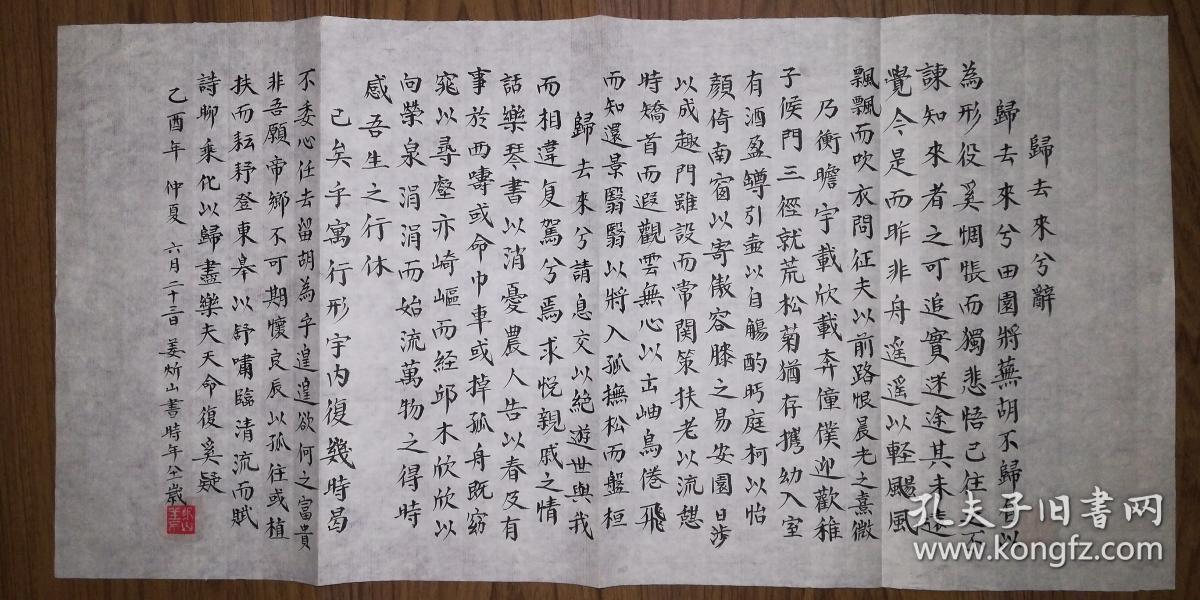 歸去來兮辭
歸去來兮田園將蕪胡不歸以
為形役奚惆悵而獨悲悟已往不
諫知來者之可追實迷途其未遠
覺今是而昨非舟遥遥以輕颺風
飄飄而吹衣問征夫以前路恨晨光之熹微
乃衡瞻宇載欣載奔僮僕迎歡稚
子候門三徑就荒松菊猶存攜幼入室
有酒盈罇引壺以自觴酌眄庭柯以怡
顏倚南窗以寄傲容膝之易安園日涉
以成趣門雖設而常関策扶老以流憇
時矯首而遐觀雲無心以出岫鳥倦飛
而知還景翳翳以將入孤撫松而盤桓
歸去來兮請息交以絕遊世與我
而相違复駕兮焉求悦親戚之情
話樂琴書以消憂農人告以春及有
事於西疇或命巾車或掉孤舟既窈
窕以尋壑亦崎嶇而経邱木欣欣以
向榮泉涓涓而始流萬物之得時
感吾生之行休
已矣乎寓行形宇內復幾時曷
不委心任去留胡為乎遑遑欲何之富貴
非吾願帝鄉不可期懷良辰以孤往或植
扶而耘耔登東皋以舒嘯臨清流而賦
詩聊乘化以歸盡樂夫天命復奚疑
乙酉年 仲夏 六月二十三日 姜炘山書時年 歲
孔夫子旧書网
www.kongfz.com